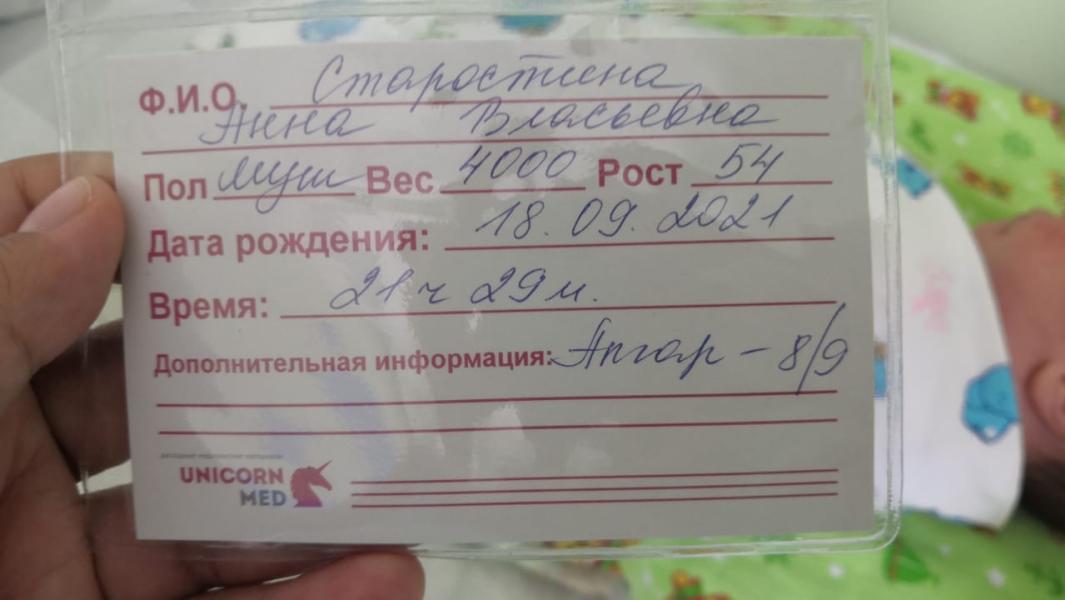 Ф.И.О. Старостина
Анна Власьевна
Пол муж Вес 4000 Рост 54
Дата рождения: 18.09.2021
Время: 21 ч 29 м.
Дополнительная информация: Апгар - 8/9
UNICORN
MED